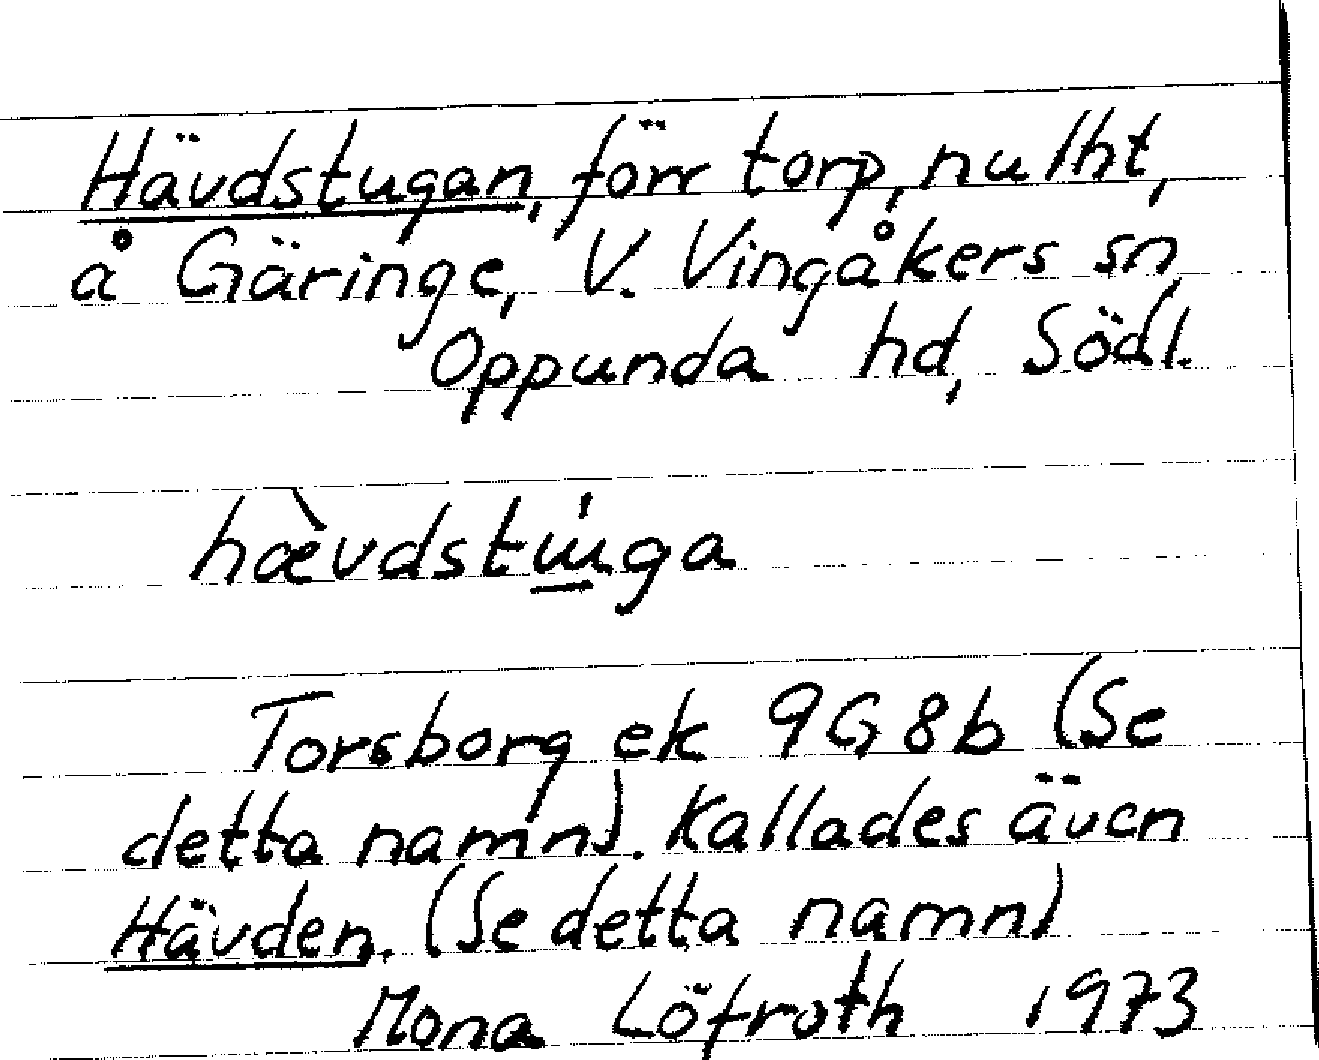 Hävdstugan, förr torp, nu lht,
å Gäringe, V. Vingåkers sn,
Oppunda hd, Södl.
hæ̀vdstu̲̍ga
Torsborg ek 9G8b (Se
detta namn). Kallades även
Hävden. (Se detta namn)
Mona Löfroth 1973